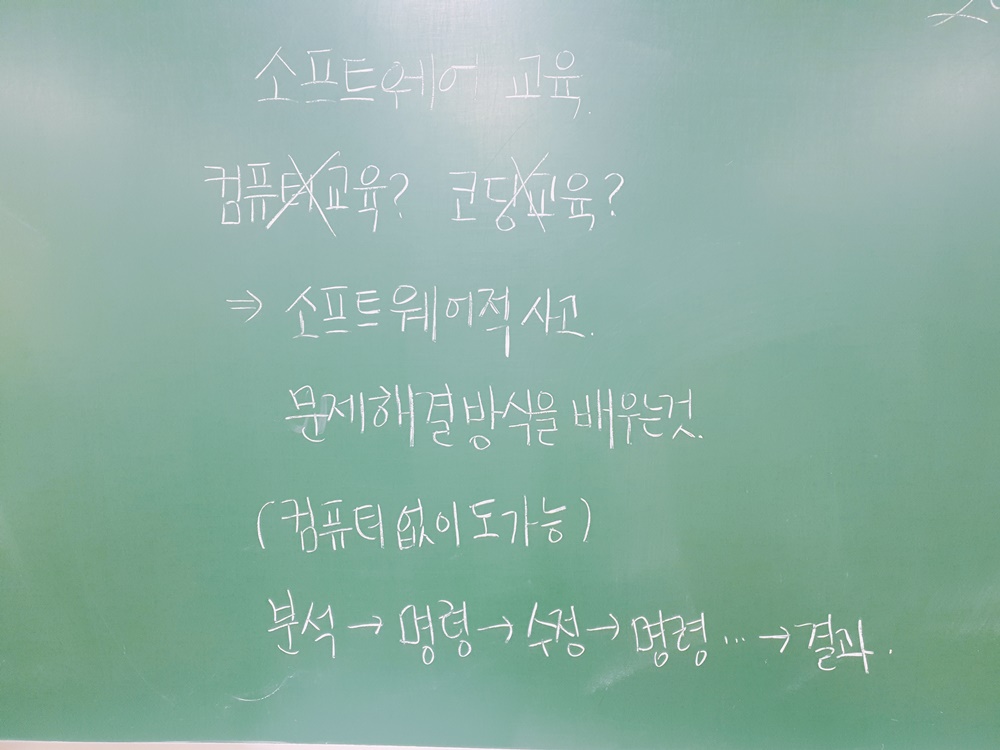 소프트웨어 교육.
컴퓨터교육? 코딩교육?
⇒ 소프트웨어적 사고.
문제해결방식을 배우는것.
(컴퓨터 없이도 가능)
분석 → 명령 → 수정 → 명령 ... → 결과.